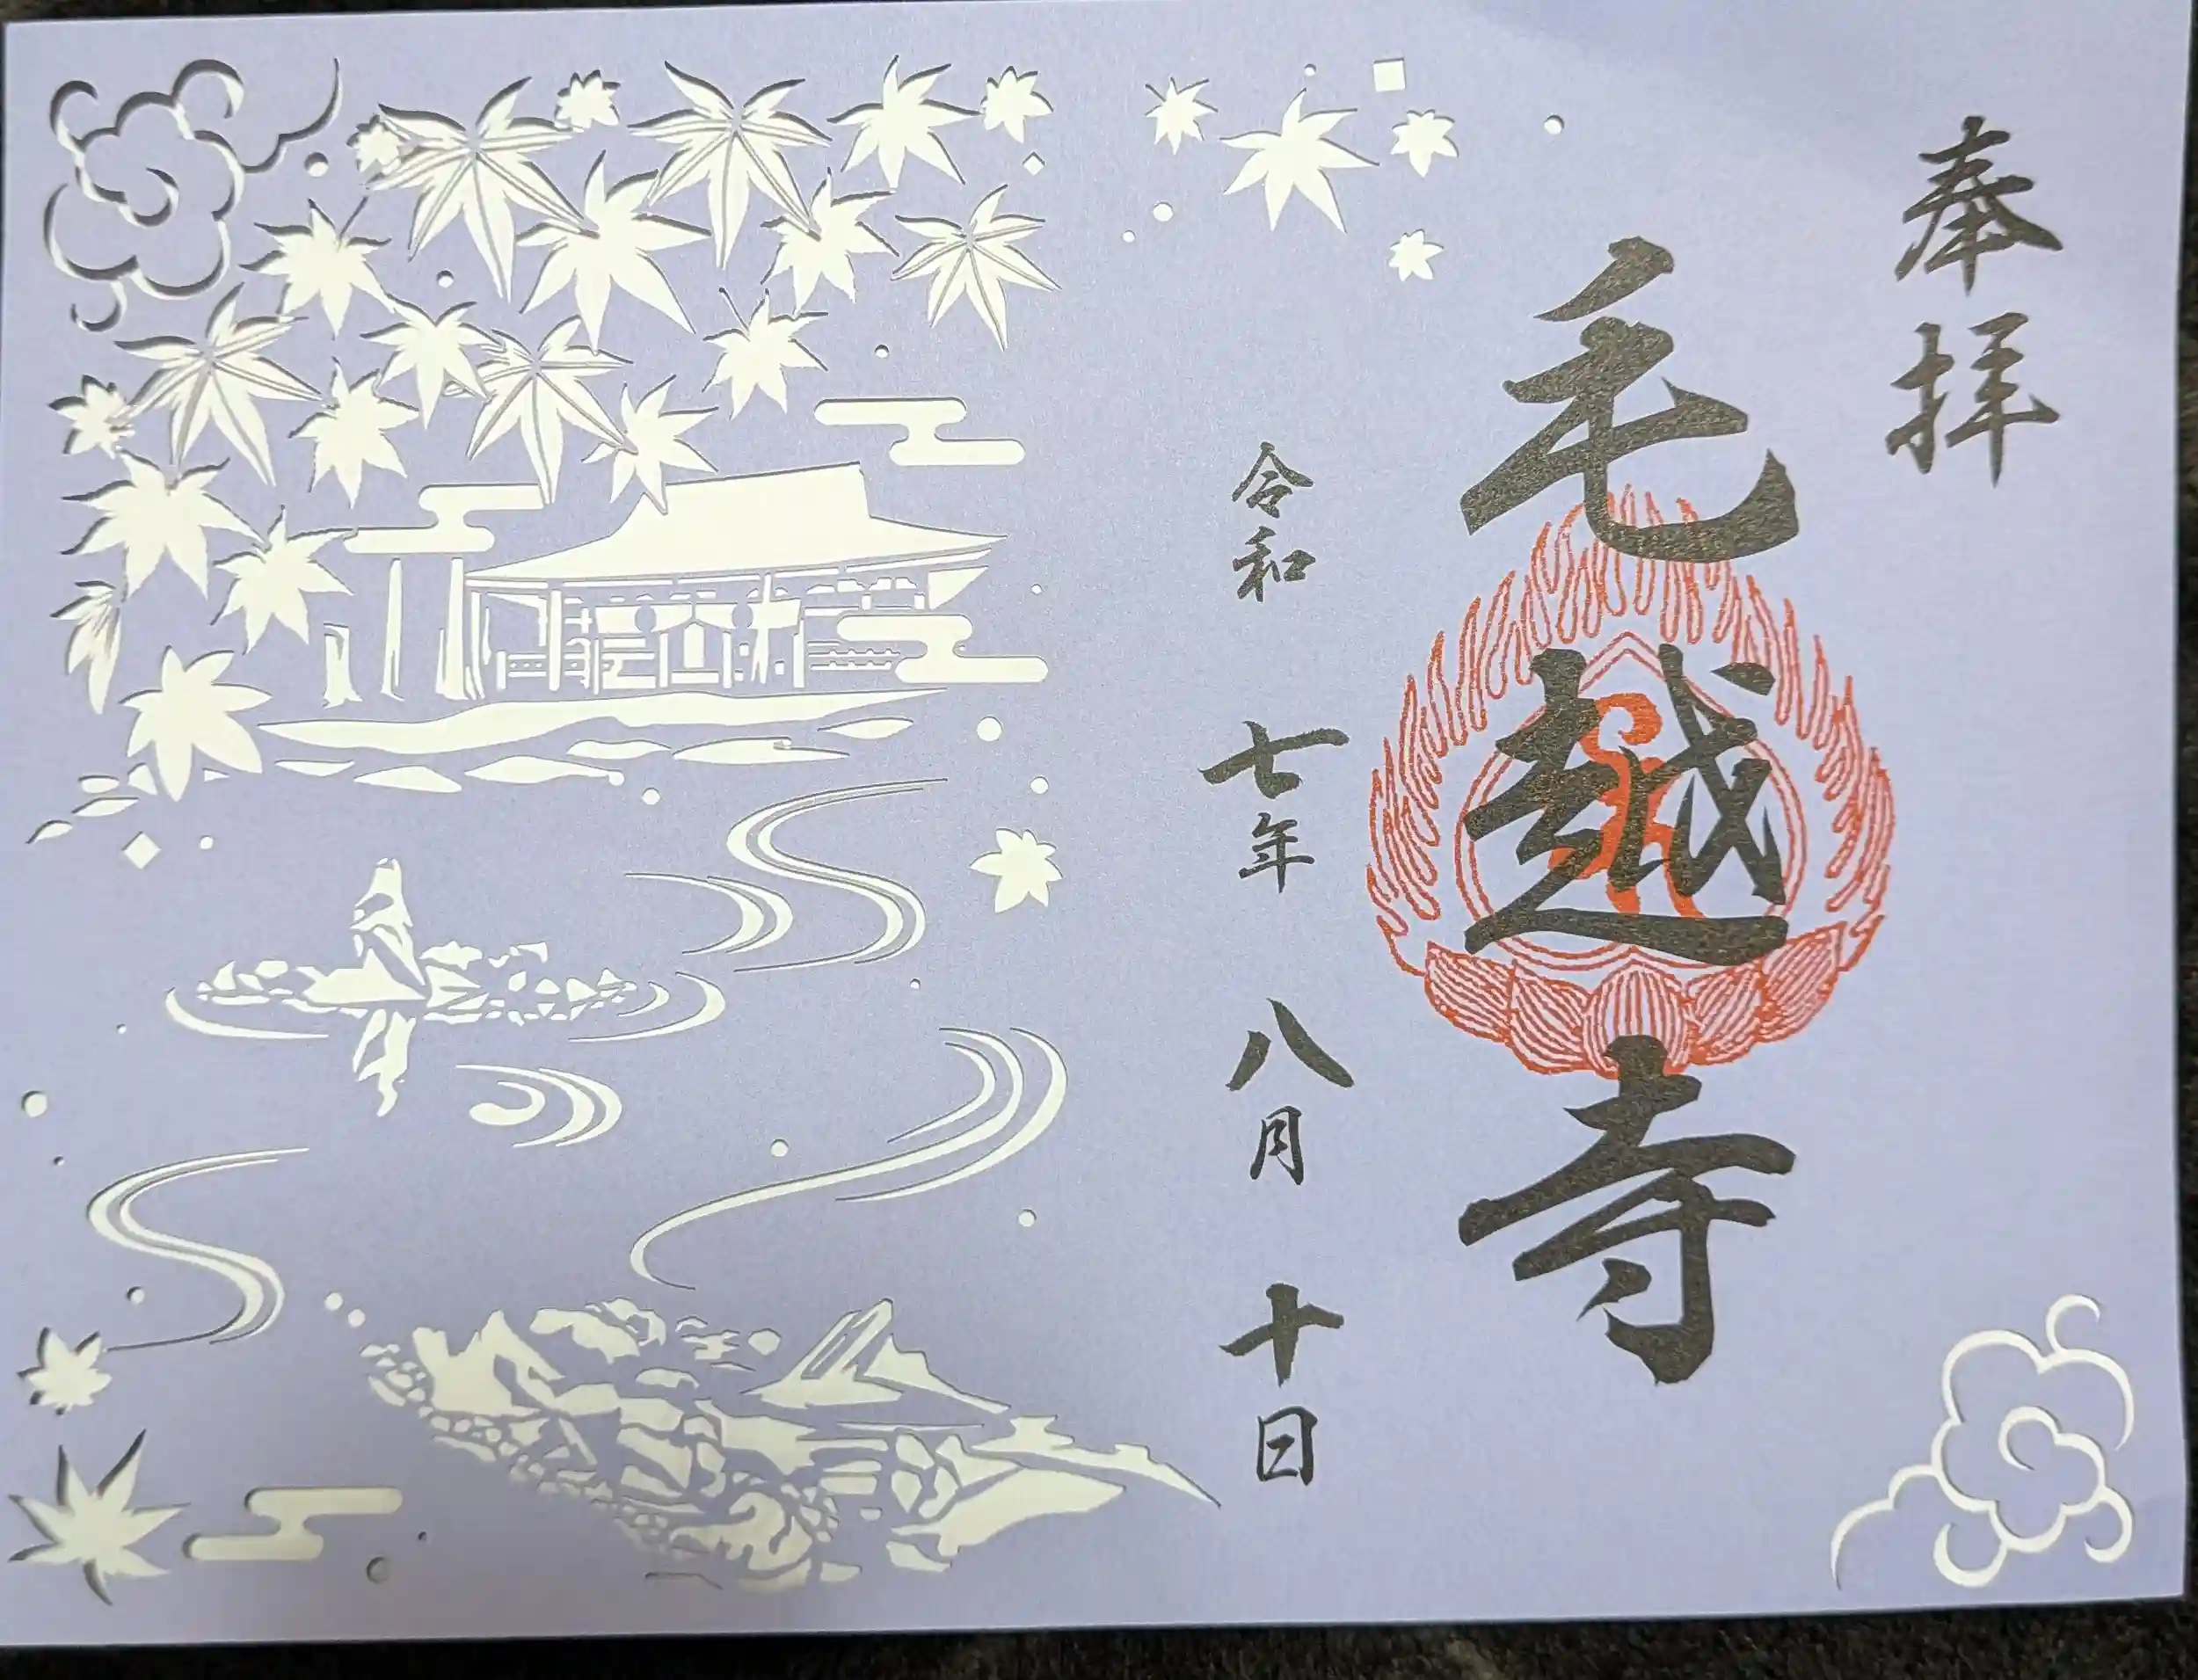 奉拝
毛越寺
令和 七年 八月 十日